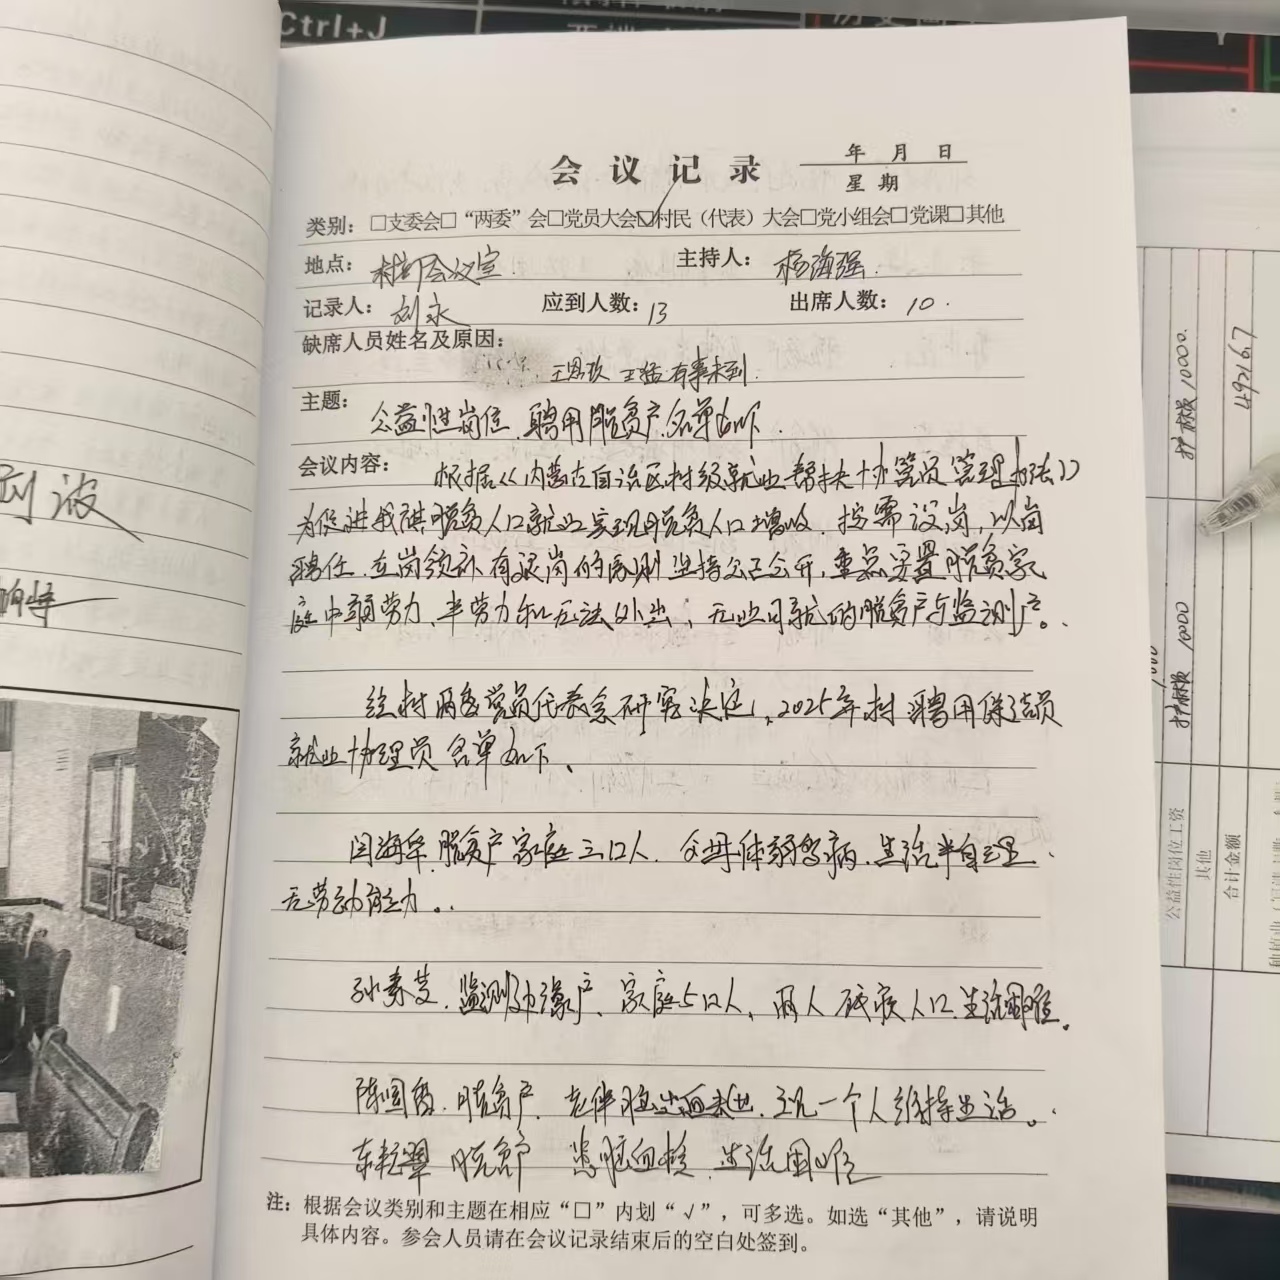 Ctrl+J
会议记录 年 月 日
星期
类别：□支委会□“两委”会□党员大会☑村民（代表）大会□党小组会□党课□其他
地点：村部会议室 主持人：杨海强
记录人：刘永 应到人数：13 出席人数：10.
缺席人员姓名及原因：
王思玖 王猛有事未到.
主题：公益性岗位聘用脱贫户名单如下
会议内容：根据《内蒙古自治区村级就业帮扶协管员管理办法》
为促进我旗脱贫人口就业实现脱贫人口增收，按需设岗，以岗
聘任，在岗领补，有序退岗的原则坚持公正公开，重点安置脱贫家
庭中弱劳力、半劳力和无法外出，无业可就的脱贫户与监测户。
经村两委党员代表会研究决定，2025年村聘用保洁员
就业协理员名单如下、
闫海军，脱贫户家庭三口人，父母体弱多病，生活半自理
无劳动能力。
孙素芝，监测户，家庭5口人，两人残疾人口，生活困难。
陈国 脱贫户，老伴 一个人维持生活。
脱贫户 患脑血栓 生活困难
注：根据会议类别和主题在相应“□”内划“√”，可多选。如选“其他”，请说明
具体内容。参会人员请在会议记录结束后的空白处签到。
刘波
公益性岗位工资
其他
合计金额
10000.
10000
49216.7